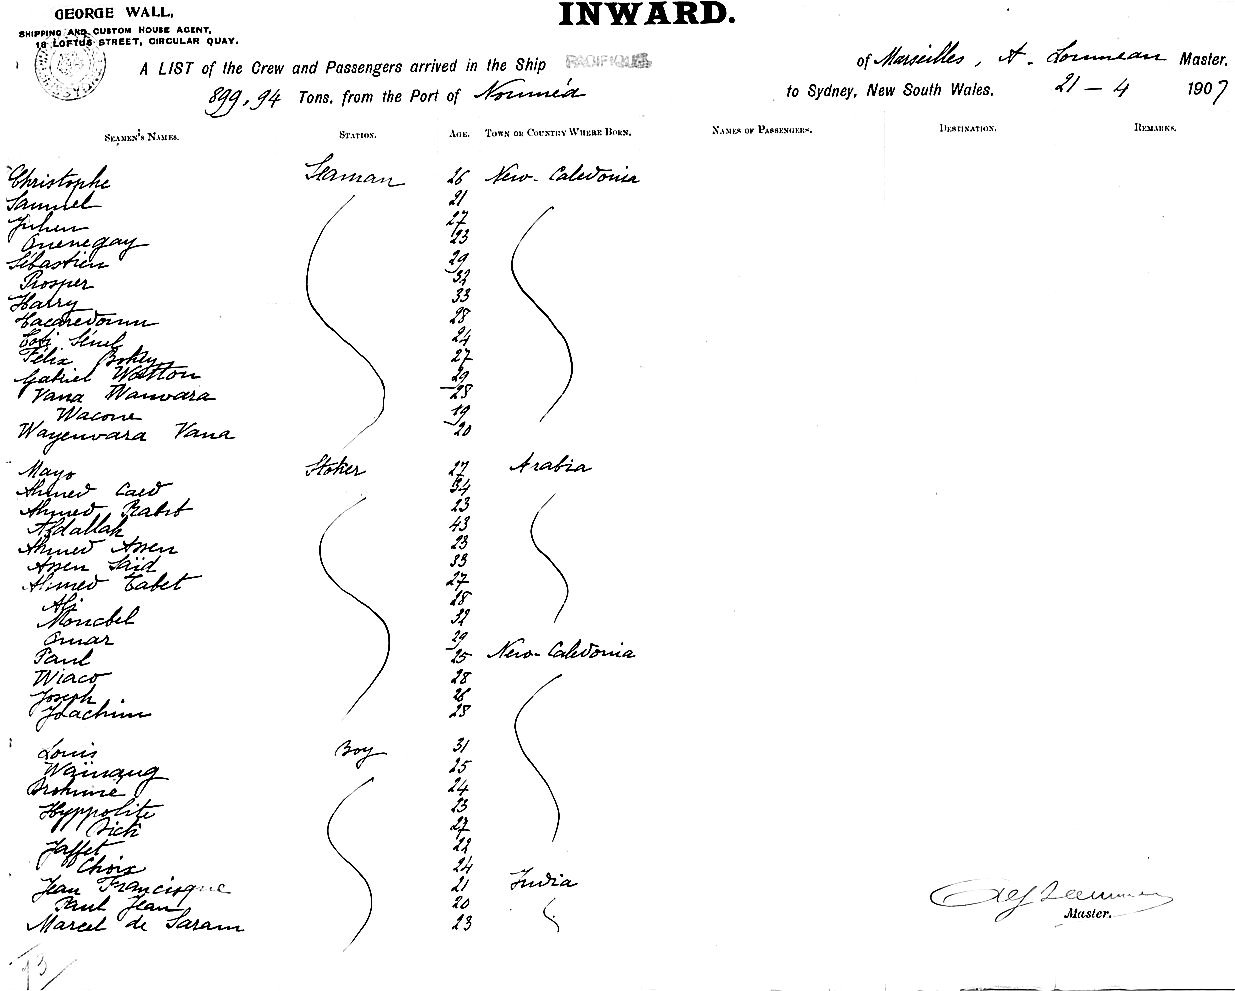 GEORGE WALL,
SHIPPING AND CUSTOM HOUSE AGENT,
18 LOFTUS STREET, CIRCULAR QUAY.
INWARD.
A LIST of the Crew and Passengers arrived in the Ship PACIFIQUE of Marseilles, A. Master,
899,94 Tons, from the Port of Nouméa to Sydney, New South Wales. 21 - 4 1907
SEAMEN'S NAMES. STATION. AGE. TOWN OR COUNTRY WHERE BORN. NAMES OF PASSENGERS. DESTINATION. REMARKS.
Christophe Seaman 26 New-Caledonia
Samuel 21
Julien 27
23
Sébastien 29
Prosper 32
Harry 33
28
24
Félix 27
Gabriel 29
Vana Wanvara 28
Wacone 19
Wayenvara Vana 20
Mayo Stoker 27 Arabia
Ahmed Caed 34
Ahmed 23
Abdallah 43
Ahmed Assen 23
Assen Saïd 33
Ahmed Tabet 27
Ali 28
Moncbel 32
Omar 29
Paul 25 New-Caledonia
Wiaco 28
Joseph 26
Joachim 28
Louis Boy 31
25
24
Hyppolite 23
27
Jaffet 22
Choix 24
Jean Francisque 21 India
Paul Jean 20
Marcel de Saram 23
Master.